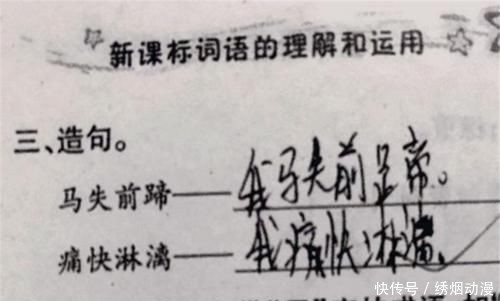 新课标词语的理解和运用
三、造句。
马失前蹄——我马失前蹄。
痛快淋漓——我痛快淋漓。
快传号/绣烟动漫